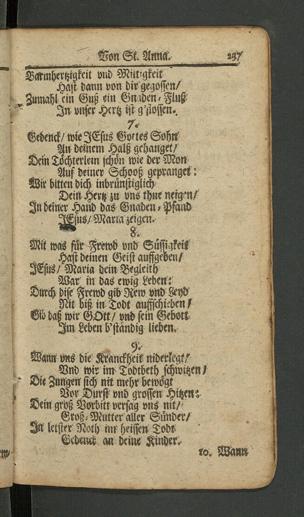 Von St. Anna. 237
Barmhertzigkeit vnd Miltigkeit
Hast dann von dir gegossen/
Zumahl ein Guß ein Gnaden-Fluß
In vnser Hertz ist g'flossen.
7.
Gedenck/ wie JEsus Gottes Sohn
An deinem Halß gehanget/
Dein Töchterlein schön wie der Mon
Auf deiner Schooß gepranget:
Wir bitten dich inbrünstiglich
Dein Hertz zu vns thue neigen/
In deiner Hand das Gnaden-Pfand
JEsus/ Maria zeigen.
8.
Mit was für Frewd vnd Süssigkeit
Hast deinen Geist auffgeben/
JEsus/ Maria dein Begleith
War in das ewig Leben:
Durch dise Frewd gib Rew vnd Leyd
Nit biß in Todt auffschieben/
Gib daß wir GOtt/ vnd sein Gebott
Im Leben b'ständig lieben.
9.
Wann vns die Kranckheit niderlegt/
Vnd wir im Todtbeth schwitzen/
Die Zungen sich nit mehr bewögt
Vor Durst vnd grossen Hitzen:
Dein groß Vorbitt versag vns nit/
Groß-Mutter aller Sünder/
In letster Noth im heissen Todt
Gedenck an deine Kinder.
10. Wann